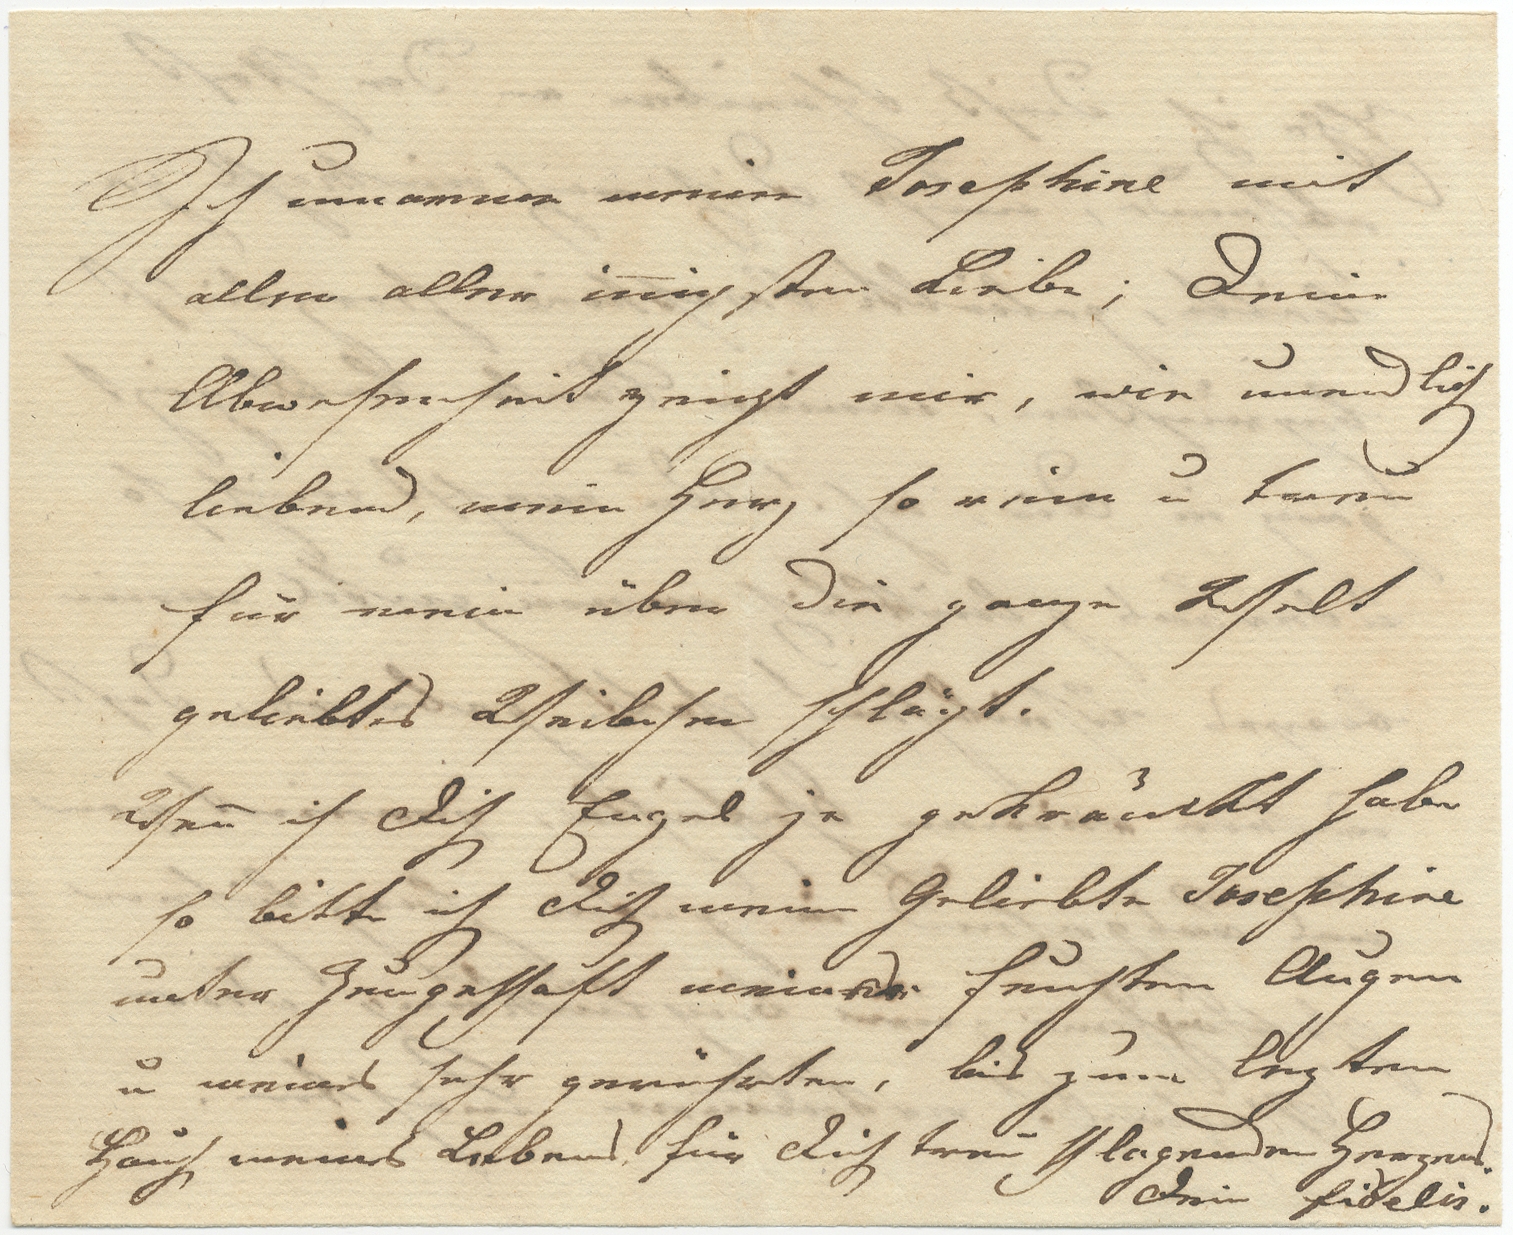 Ich umarme meine Josephine mit
aller aller in̄igsten Liebe; Deine
Abwesenheit zeigt mir, wie unendlich
liebend, mein Herz so rein u treu
für mein über die ganze Welt
geliebtes Weibchen schlägt.
Wen̄ ich Dich Engel je gekränkt habe
so bitte ich Dich meine Geliebte Josephine
unter Zeugschaft meiner feuchten Augen
u meines sehr gerührten, bis zum lezten
Hauch meines Lebens für Dich treu schlagenden Herzens.
Dein fidelis.